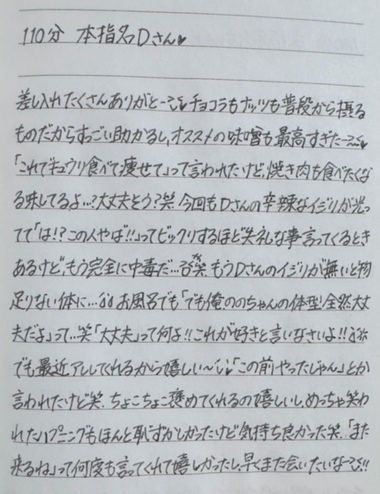 110分 本指名Dさん♥
差し入れたくさんありがとーっ♥チョコラもナッツも普段から摂る
ものだからすっごい助かるし、オススメの味噌も最高すぎたーっ♥
「これでキュウリ食べて痩せて」って言われたけど、焼き肉も食べたくな
る味してるよ…?大丈夫そう?笑 今回もDさんの辛辣なイジリが光っ
てて「は!?この人やば!!」ってビックリするほど失礼な事言ってくるとき
あるけど、もう完全に中毒だ…笑 もうDさんのイジリが無いと物
足りない体に… お風呂でも「でも俺ののちゃんの体型全然大丈
夫だよ」って…笑「大丈夫」って何よ!!これが好きと言いなさいよ!!
でも最近アレしてくれるから嬉しい〜♥「この前やったじゃん」とか
言われたけど笑、ちょこちょこ褒めてくれるの嬉しいし、めっちゃ笑わ
れたハプニングもほんと恥ずかしかったけど気持ち良かった笑、「また
来るね」って何度も言ってくれて嬉しかったし、早くまた会いたいなーっ!!